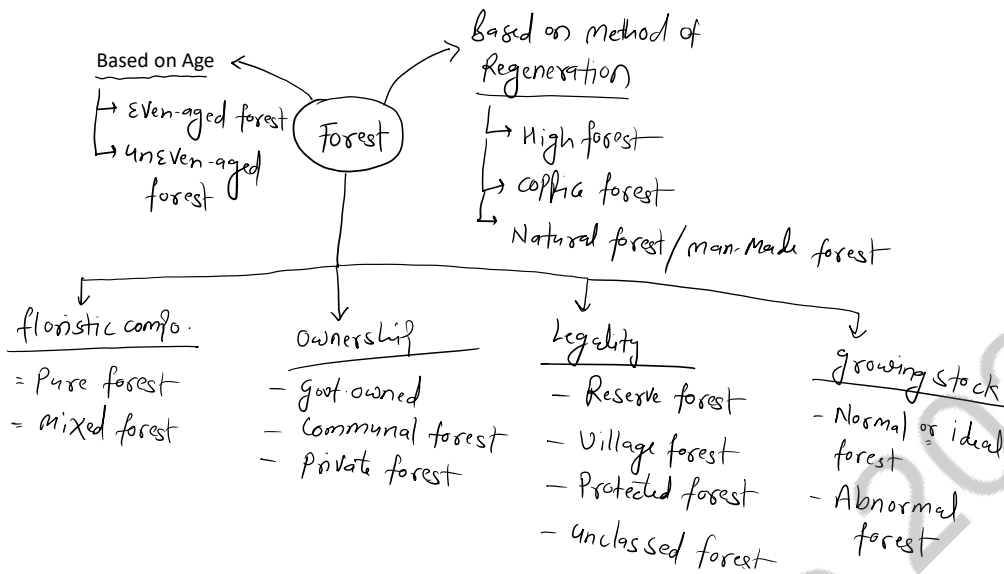 Based on Age
→ Even-aged forest
→ unEven-aged
forest
Forest
Based on Method of
Regeneration
→ High forest
→ coppice forest
→ Natural forest/man-Made forest
floristic compo.
= Pure forest
= Mixed forest
ownership
- govt.owned
- Communal forest
- Private forest
Legality
- Reserve forest
- Village forest
- Protected forest
- unclassed forest
growing stock
- Normal or ideal
forest
- Abnormal
forest